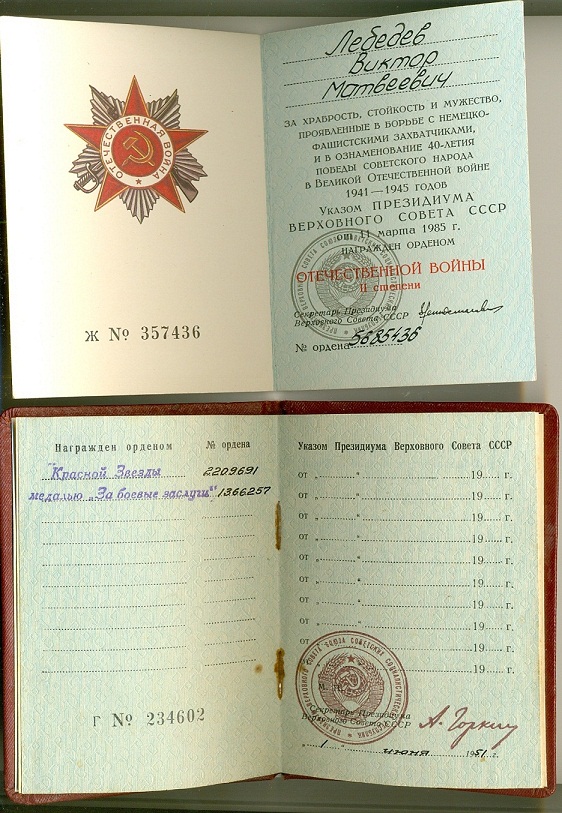 Лебедев
Виктор
Матвеевич
ЗА ХРАБРОСТЬ, СТОЙКОСТЬ И МУЖЕСТВО,
ПРОЯВЛЕННЫЕ В БОРЬБЕ С НЕМЕЦКО-
ФАШИСТСКИМИ ЗАХВАТЧИКАМИ,
И В ОЗНАМЕНОВАНИЕ 40-ЛЕТИЯ
ПОБЕДЫ СОВЕТСКОГО НАРОДА
В ВЕЛИКОЙ ОТЕЧЕСТВЕННОЙ ВОЙНЕ
1941—1945 ГОДОВ
УКАЗОМ ПРЕЗИДИУМА
ВЕРХОВНОГО СОВЕТА СССР
от 11 марта 1985 г.
НАГРАЖДЕН ОРДЕНОМ
ОТЕЧЕСТВЕННОЙ ВОЙНЫ
II степени
Секретарь Президиума
Верховного Совета СССР
№ ордена 5685436
ОТЕЧЕСТВЕННАЯ ВОЙНА
Ж № 357436
Награжден орденом № ордена
"Красной Звезды 2209691
медалью „За боевые заслуги" 1366257
Г № 234602
Указом Президиума Верховного Совета СССР
от „ “ 19 г.
от „ “ 19 г.
от „ “ 19 г.
от „ “ 19 г.
от „ “ 19 г.
от „ “ 19 г.
от „ “ 19 г.
от „ “ 19 г.
от „ “ 19 г.
от „ “ 19 г.
М. П.
Секретарь Президиума
Верховного Совета СССР А. Горкин
„ 1 “ июня 1951 г.